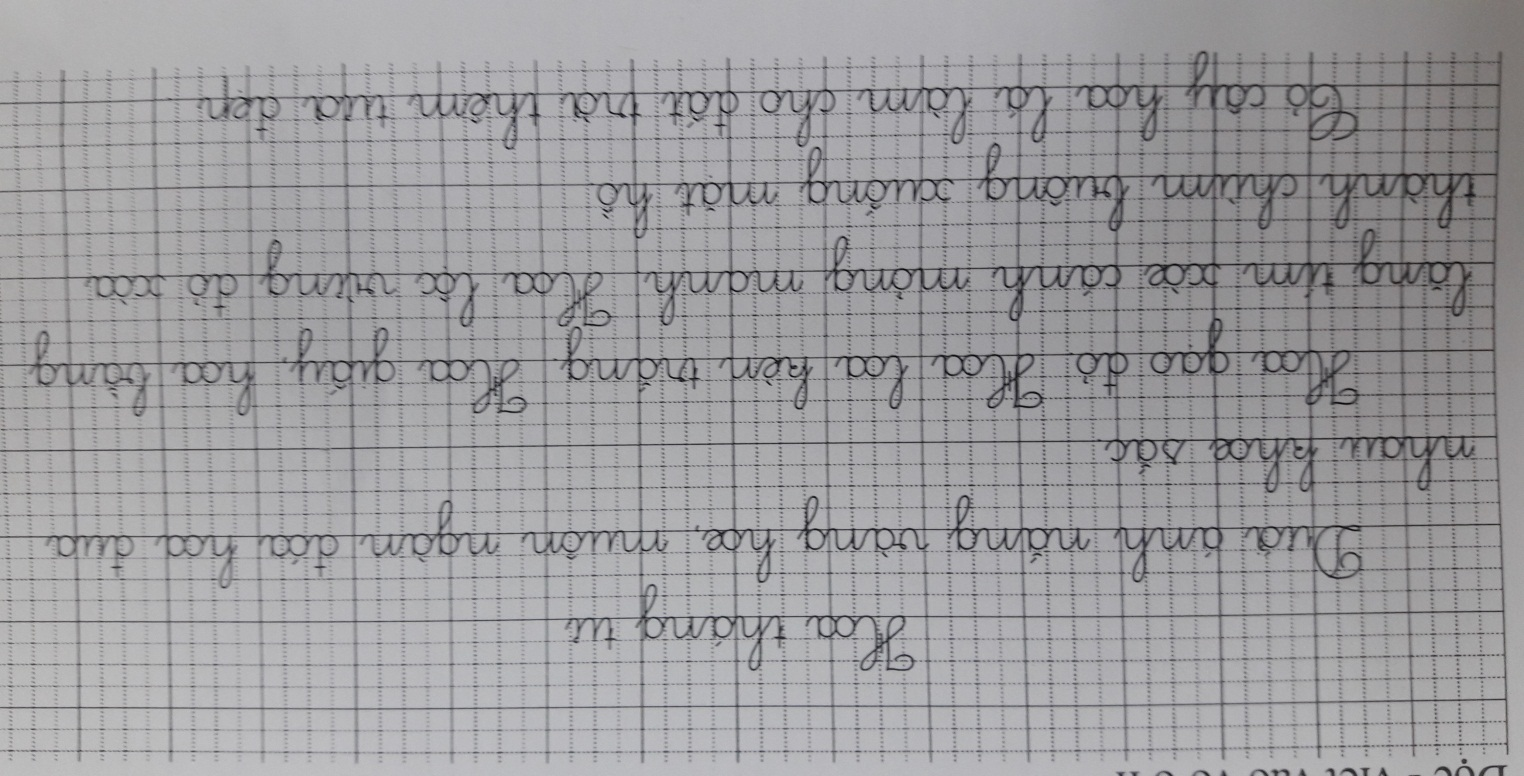 Hoa tháng tư
Dưới ánh nắng vàng hoe, muôn ngàn đóa hoa đua
nhau khoe sắc.
Hoa gạo đỏ. Hoa loa kèn trắng. Hoa giấy, hoa bằng
lăng tím xòe cánh mỏng manh. Hoa lộc vừng đỏ xòa
thành chùm buông xuống mặt hồ.
Cỏ cây hoa lá làm cho đất trời thêm tươi đẹp.